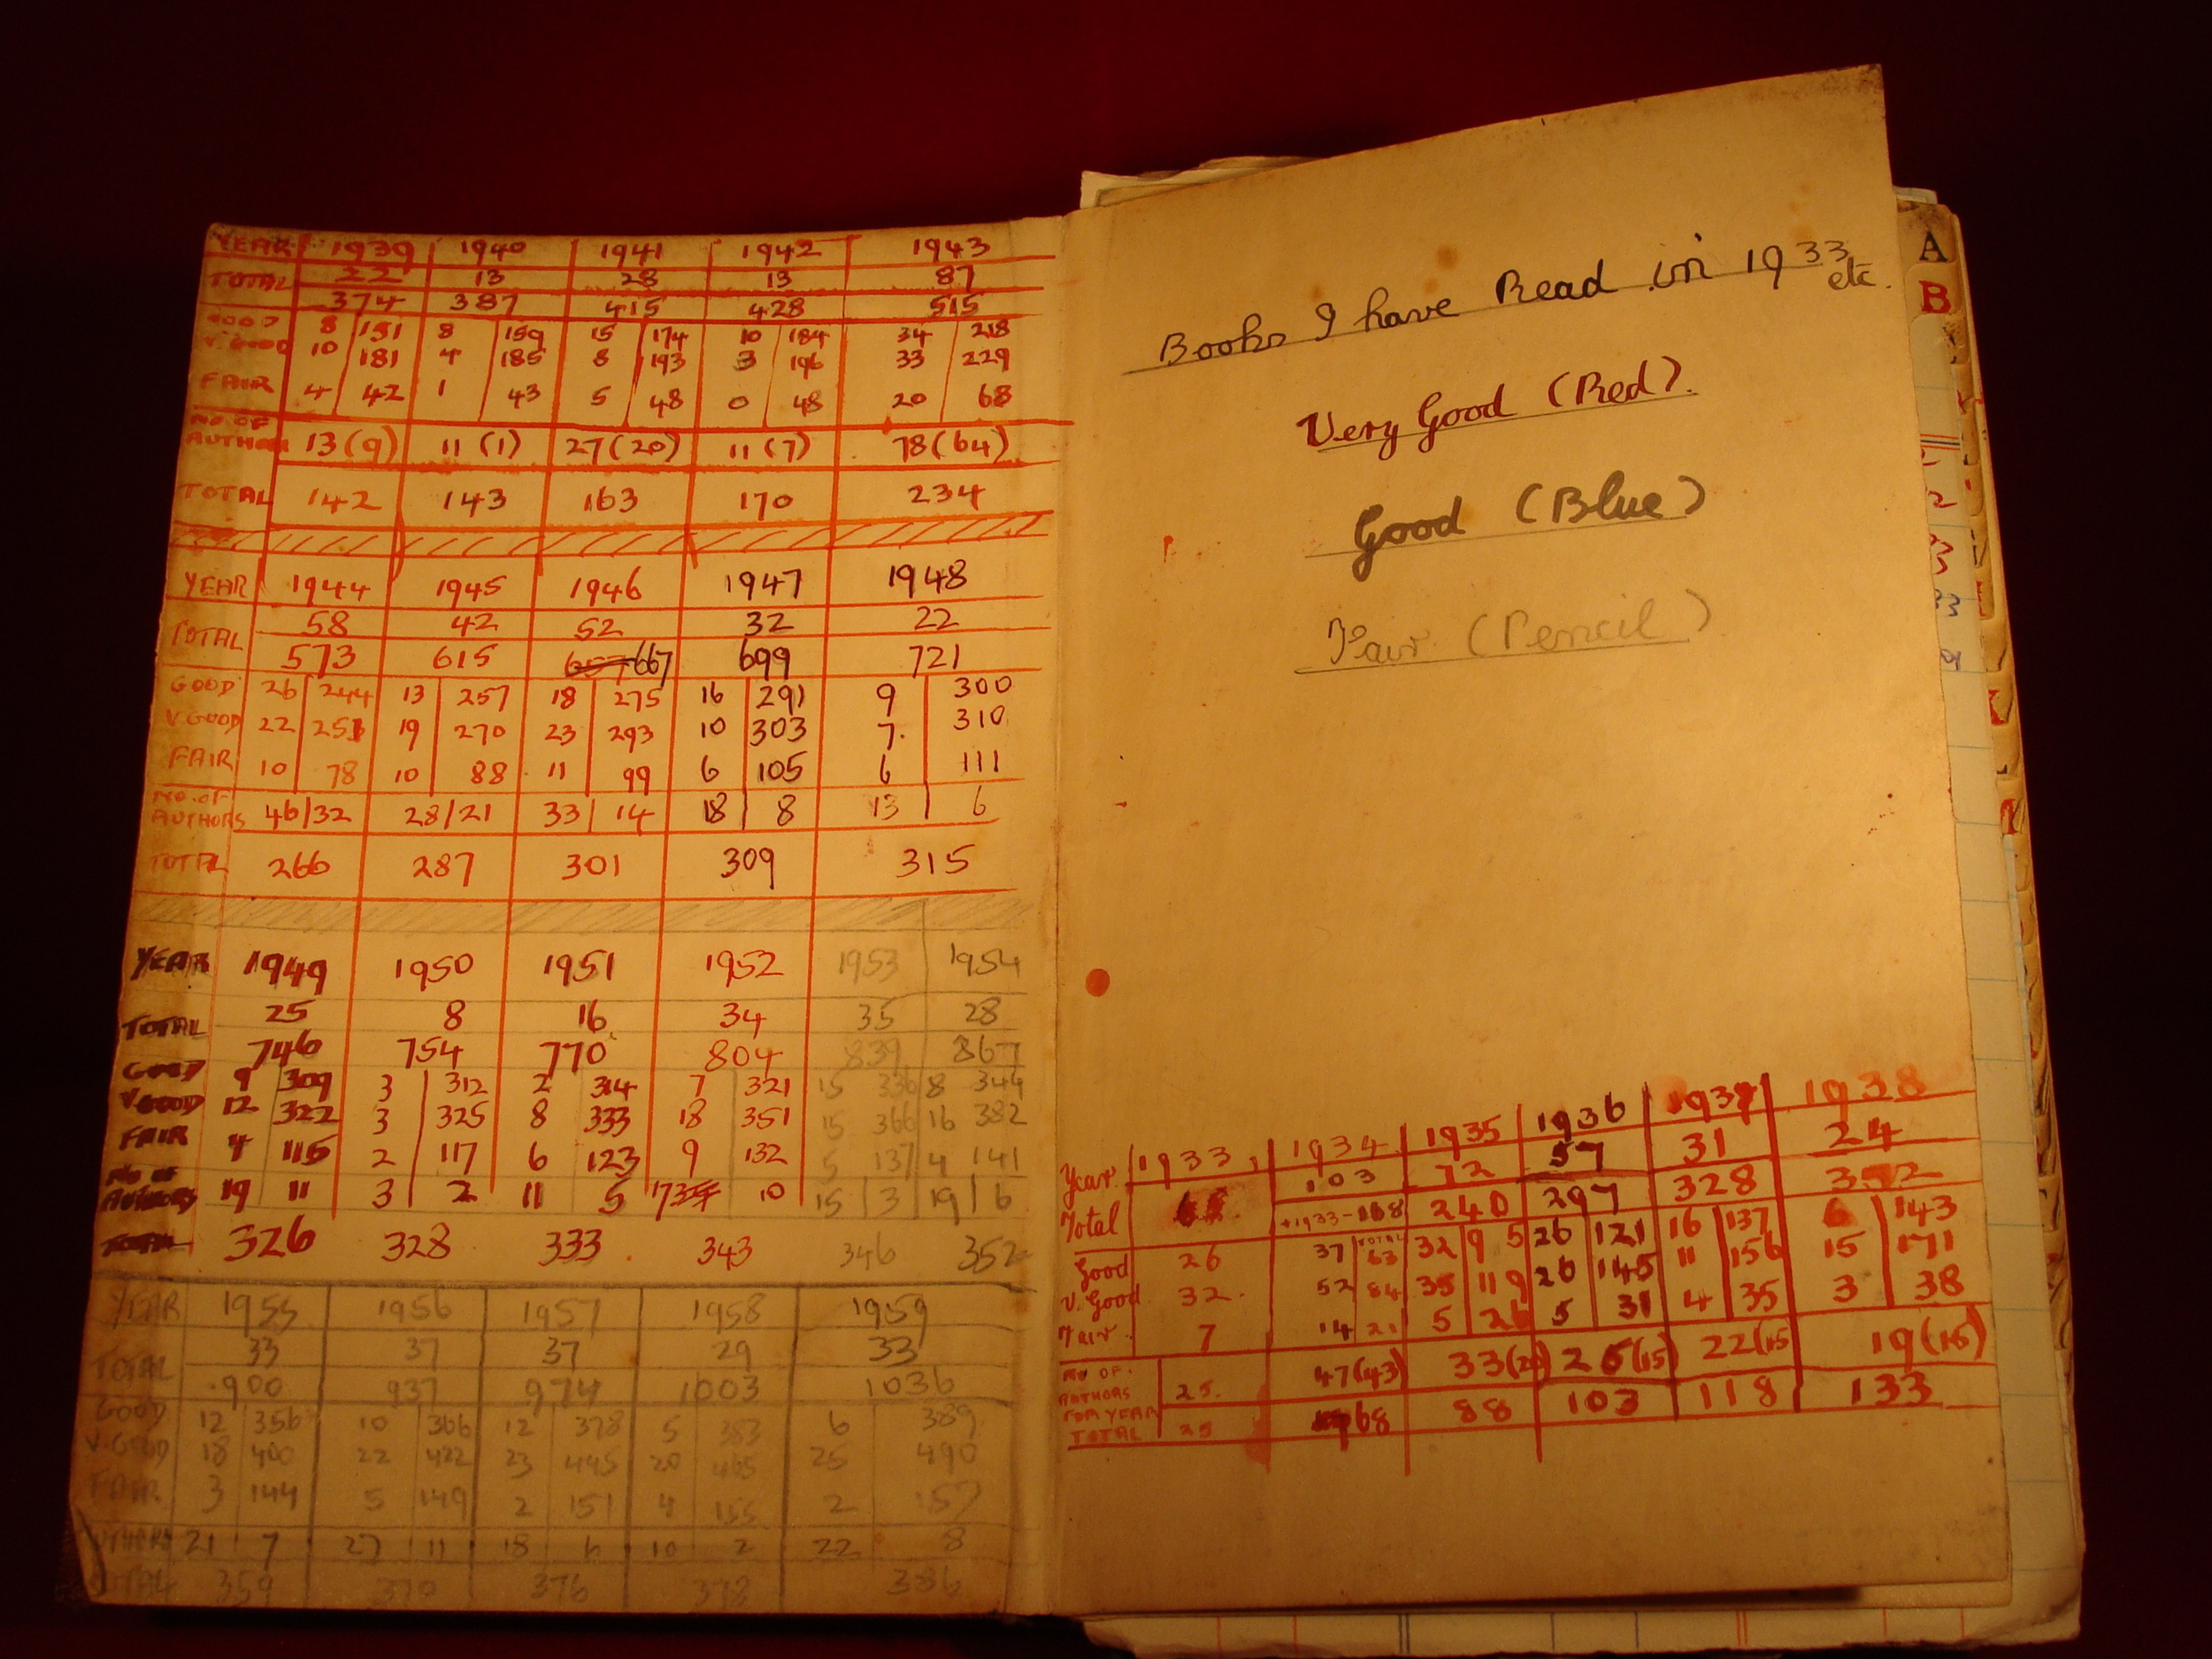 YEAR 1939 1940 1941 1942 1943
TOTAL 22 13 28 13 87
374 387 415 428 515
GOOD 8 151 8 159 15 174 10 184 34 218
V. GOOD 10 181 4 185 8 193 3 196 33 229
FAIR 4 42 1 43 5 48 0 48 20 68
NO. OF
AUTHOR 13 (9) 11 (1) 27 (20) 11 (7) 78 (64)
TOTAL 142 143 163 170 234
YEAR 1944 1945 1946 1947 1948
58 42 52 32 22
TOTAL
573 615 657 667 699 721
GOOD 26 244 13 257 18 275 16 291 9 300
V. GOOD 22 251 19 270 23 293 10 303 7. 310
FAIR 10 78 10 88 11 99 6 105 6 111
NO. OF
AUTHORS 46/32 28/21 33 14 18 8 13 6
TOTAL 266 287 301 309 315
YEAR 1949 1950 1951 1952 1953 1954
TOTAL 25 8 16 34 35 28
746 754 770 804 839 867
GOOD 9 309 3 312 2 314 7 321 15 336 8 344
V. GOOD 12 322 3 325 8 333 18 351 15 366 16 382
FAIR 4 115 2 117 6 123 9 132 5 137 4 141
NO OF
AUTHORS 19 11 3 2 11 5 17 10 15 3 19 6
TOTAL 326 328 333 343 346 352
YEAR 1955 1956 1957 1958 1959
33 37 37 29 33
TOTAL
900 937 974 1003 1036
GOOD 12 356 10 366 12 378 5 383 6 389
V. GOOD 18 400 22 422 23 445 20 465 25 490
FAIR 3 144 5 149 2 151 4 155 2 157
AUTHORS 21 7 27 11 18 6 10 2 22 8
TOTAL 359 370 376 378 386
Books I have Read in 1933 etc.
Very Good (Red).
Good (Blue)
Fair (Pencil)
Year. 1933 1934 1935 1936 1937 1938
Total 103 72 57 31 24
+1933-168 240 297 328 352
TOTAL
Good 26 37 63 32 95 26 121 16 137 6 143
V. Good 32. 52 84 35 119 26 145 11 156 15 171
Fair. 7 14 21 5 26 5 31 4 35 3 38
NO OF.
AUTHORS
FOR YEAR 25. 47 (43) 33 (20) 26 (15) 22 (15 19 (15)
TOTAL 25 68 88 103 118 133
A
B